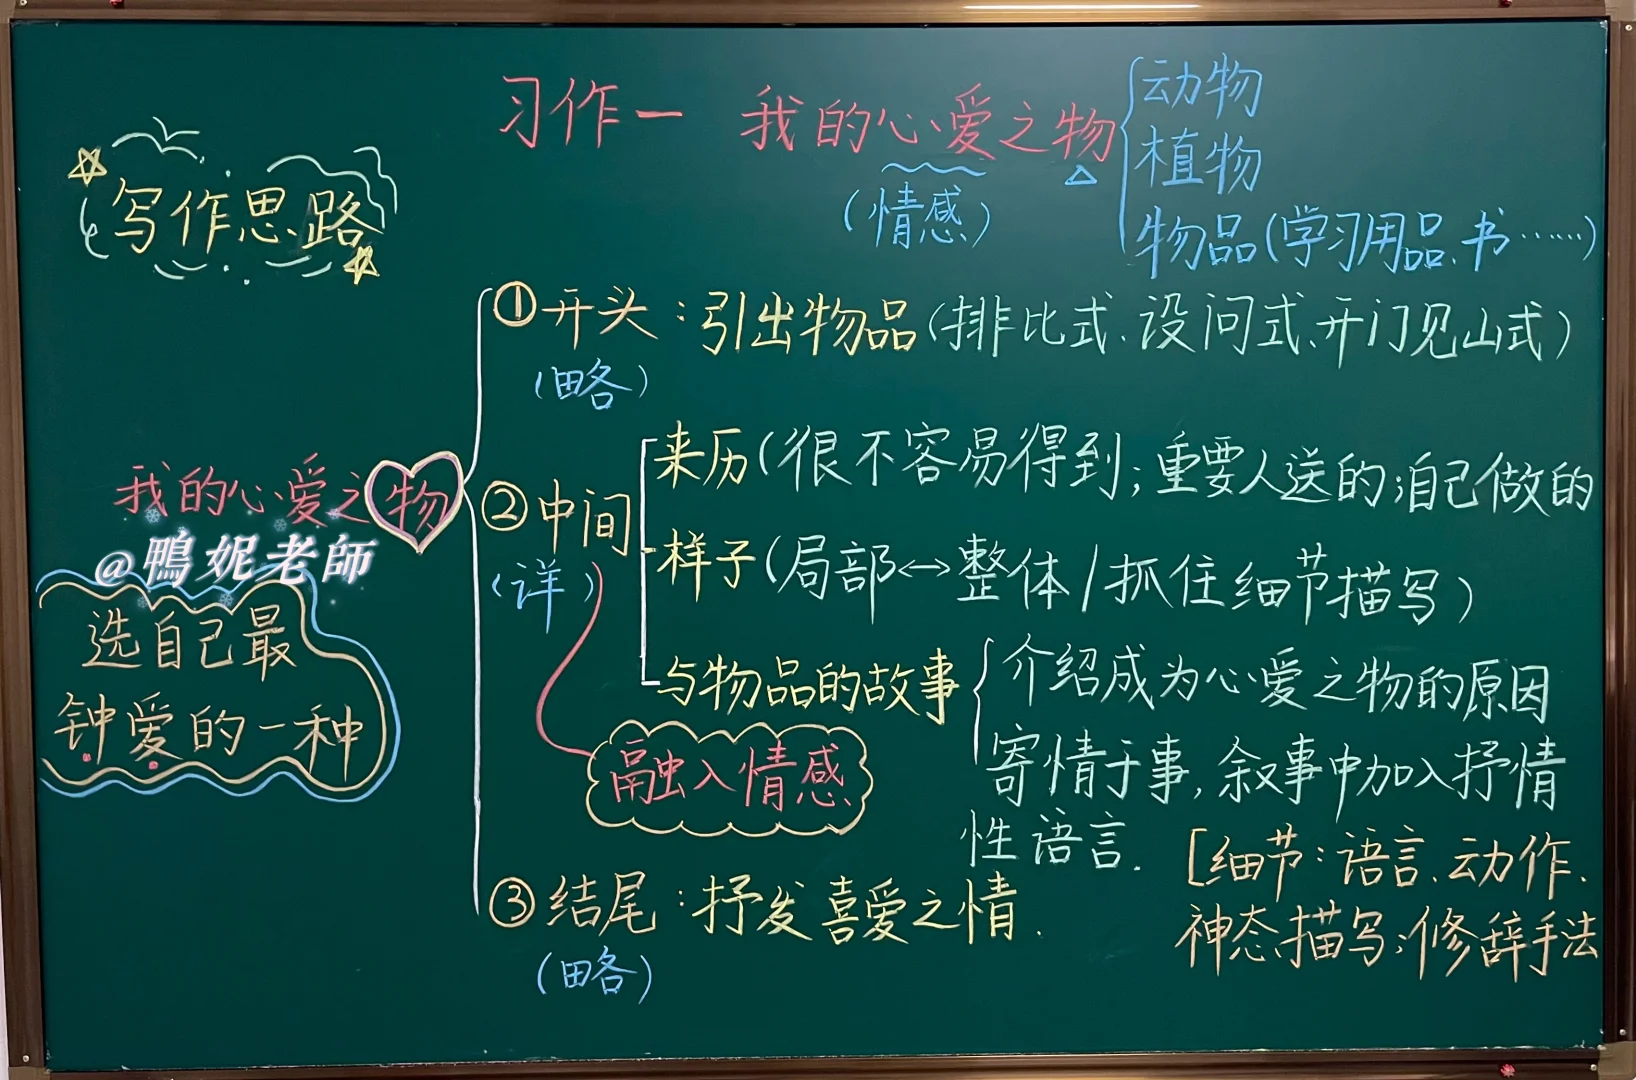 习作一 我的心爱之物
(情感)
动物
植物
物品(学习用品、书……)
写作思路
我的心爱之物
@鴨妮老師
选自己最
钟爱的一种
①开头：引出物品(排比式、设问式、开门见山式)
(略)
②中间
(详)
来历(很不容易得到;重要人送的;自己做的
样子(局部↔整体/抓住细节描写)
与物品的故事
介绍成为心爱之物的原因
寄情于事,叙事中加入抒情
性语言.
融入情感
[细节：语言、动作、
神态描写;修辞手法
③结尾：抒发喜爱之情.
(略)